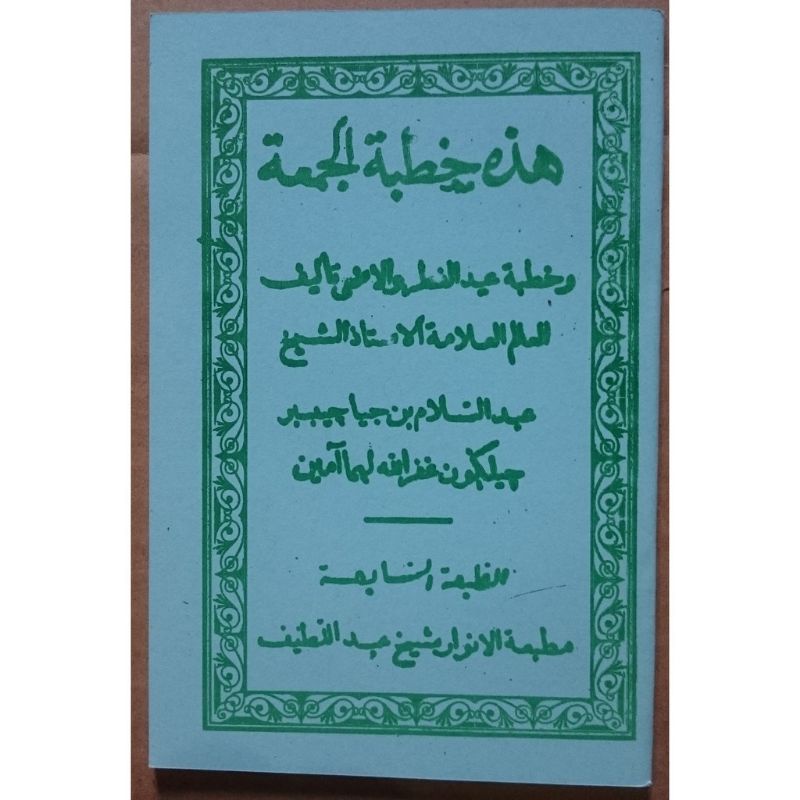 هذه خطبة الجمعة
وخطبة عيد الفطر والاضحى تأليف
العالم العلامة الاستاذ الشيخ
عبد السلام بن جيا چيبير
چيلكون غفر الله لهما آمين
الطبعة السابعة
مطبعة الانوار بشيخ عبد اللطيف